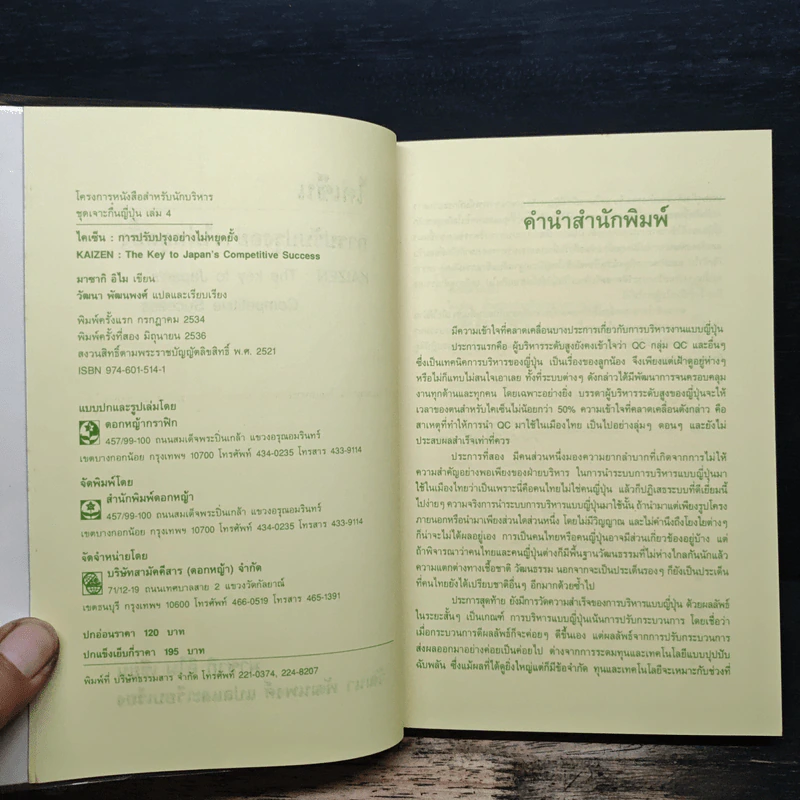 โครงการหนังสือสำหรับนักบริหาร
ชุดเจาะกึ๋นญี่ปุ่น เล่ม 4
ไคเซ็น : การปรับปรุงอย่างไม่หยุดยั้ง
KAIZEN : The Key to Japan's Competitive Success
มาซากิ อิไม เขียน
วัฒนา พัฒนพงศ์ แปลและเรียบเรียง
พิมพ์ครั้งแรก กรกฎาคม 2534
พิมพ์ครั้งที่สอง มิถุนายน 2536
สงวนลิขสิทธิ์ตามพระราชบัญญัติลิขสิทธิ์ พ.ศ. 2521
ISBN 974-601-514-1
แบบปกและรูปเล่มโดย
ดอกหญ้ากราฟิก
457/99-100 ถนนสมเด็จพระปิ่นเกล้า แขวงอรุณอมรินทร์
เขตบางกอกน้อย กรุงเทพฯ 10700 โทรศัพท์ 434-0235 โทรสาร 433-9114
จัดพิมพ์โดย
สำนักพิมพ์ดอกหญ้า
457/99-100 ถนนสมเด็จพระปิ่นเกล้า แขวงอรุณอมรินทร์
เขตบางกอกน้อย กรุงเทพฯ 10700 โทรศัพท์ 434-0235 โทรสาร 433-9114
จัดจำหน่ายโดย
บริษัทสามัคคีสาร (ดอกหญ้า) จำกัด
71/12-19 ถนนเทศบาลสาย 2 แขวงวัดกัลยาณ์
เขตธนบุรี กรุงเทพฯ 10600 โทรศัพท์ 466-0519 โทรสาร 465-1391
ปกอ่อนราคา 120 บาท
ปกแข็งเย็บกี่ราคา 195 บาท
พิมพ์ที่ บริษัทธรรมสาร จำกัด โทรศัพท์ 221-0374, 224-8207
คำนำสำนักพิมพ์
มีความเข้าใจที่คลาดเคลื่อนบางประการเกี่ยวกับการบริหารงานแบบญี่ปุ่น
ประการแรกคือ ผู้บริหารระดับสูงยังคงเข้าใจว่า QC กลุ่ม QC และอื่นๆ
ซึ่งเป็นเทคนิคการบริหารของญี่ปุ่น เป็นเรื่องของลูกน้อง จึงเพียงแต่เฝ้าดูอยู่ห่างๆ
หรือไม่ก็แทบไม่สนใจเอาเลย ทั้งที่ระบบต่างๆ ดังกล่าวได้มีพัฒนาการจนครอบคลุม
งานทุกด้านและทุกคน โดยเฉพาะอย่างยิ่ง บรรดาผู้บริหารระดับสูงของญี่ปุ่นจะให้
เวลาของตนสำหรับไคเซ็นไม่น้อยกว่า 50% ความเข้าใจที่คลาดเคลื่อนดังกล่าว คือ
สาเหตุที่ทำให้การนำ QC มาใช้ในเมืองไทย เป็นไปอย่างลุ่มๆ ดอนๆ และยังไม่
ประสบผลสำเร็จเท่าที่ควร
ประการที่สอง มีคนส่วนหนึ่งมองความยากลำบากที่เกิดจากการไม่ให้
ความสำคัญอย่างพอเพียงของฝ่ายบริหาร ในการนำระบบการบริหารแบบญี่ปุ่นมา
ใช้ในเมืองไทยว่าเป็นเพราะนี่คือคนไทยไม่ใช่คนญี่ปุ่น แล้วก็ปฏิเสธระบบที่ดีเยี่ยมนี้
ไปง่ายๆ ความจริงการนำระบบการบริหารแบบญี่ปุ่นมาใช้นั้น ถ้านำมาแต่เพียงรูปโครง
ภายนอกหรือนำมาเพียงส่วนใดส่วนหนึ่ง โดยไม่มีวิญญาณ และไม่คำนึงถึงโยงใยต่างๆ
ก็น่าจะไม่ได้ผลอยู่เอง การเป็นคนไทยหรือคนญี่ปุ่นอาจมีส่วนเกี่ยวข้องอยู่บ้าง แต่
ถ้าพิจารณาว่าคนไทยและคนญี่ปุ่นต่างก็มีพื้นฐานวัฒนธรรมที่ไม่ห่างไกลกันนักแล้ว
ความแตกต่างทางเชื้อชาติ วัฒนธรรม นอกจากจะเป็นประเด็นรองๆ ก็ยังเป็นประเด็น
ที่คนไทยยังได้เปรียบชาติอื่นๆ อีกมากด้วยซ้ำไป
ประการสุดท้าย ยังมีการวัดความสำเร็จของการบริหารแบบญี่ปุ่น ด้วยผลลัพธ์
ในระยะสั้นๆ เป็นเกณฑ์ การบริหารแบบญี่ปุ่นเน้นการปรับกระบวนการ โดยเชื่อว่า
เมื่อกระบวนการดีผลลัพธ์ก็จะค่อยๆ ดีขึ้นเอง แต่ผลลัพธ์จากการปรับกระบวนการ
ส่งผลออกมาอย่างค่อยเป็นค่อยไป ต่างจากการระดมทุนและเทคโนโลยีแบบปุบปับ
ฉับพลัน ซึ่งแม้ผลที่ได้ดูยิ่งใหญ่แต่ก็มีข้อจำกัด ทุนและเทคโนโลยีจะเหมาะกับช่วงที่